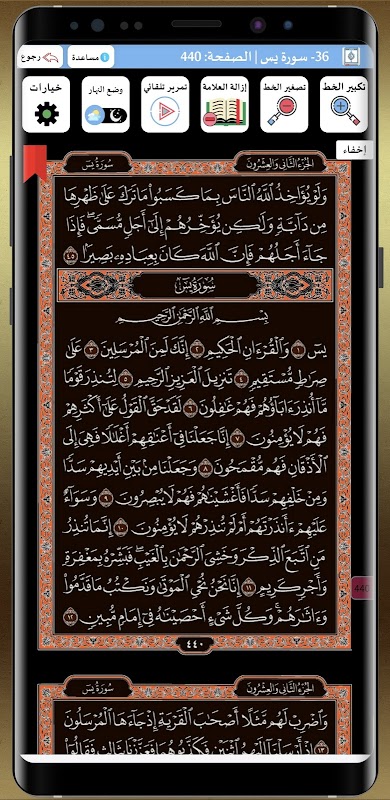 36- سورة يس | الصفحة: 440
مساعدة
رجوع
تكبير الخط
تصغير الخط
إزالة العلامة
تمرير تلقائي
وضع النهار
خيارات
إخفاء
الجزء الثاني والعشرون
سورة يس
وَلَوْ يُؤَاخِذُ اللَّهُ النَّاسَ بِمَا كَسَبُوا مَا تَرَكَ عَلَىٰ ظَهْرِهَا
مِن دَابَّةٍ وَلَٰكِن يُؤَخِّرُهُمْ إِلَىٰ أَجَلٍ مُّسَمًّى ۖ فَإِذَا
جَاءَ أَجَلُهُمْ فَإِنَّ اللَّهَ كَانَ بِعِبَادِهِ بَصِيرًا ٤٥
سورة يس
بِسْمِ اللَّهِ الرَّحْمَٰنِ الرَّحِيمِ
يسٓ ١ وَالْقُرْءَانِ الْحَكِيمِ ٢ إِنَّكَ لَمِنَ الْمُرْسَلِينَ ٣ عَلَىٰ
صِرَاطٍ مُّسْتَقِيمٍ ٤ تَنزِيلَ الْعَزِيزِ الرَّحِيمِ ٥ لِتُنذِرَ قَوْمًا
مَّا أُنذِرَ ءَابَاؤُهُمْ فَهُمْ غَٰفِلُونَ ٦ لَقَدْ حَقَّ الْقَوْلُ عَلَىٰ أَكْثَرِهِمْ
فَهُمْ لَا يُؤْمِنُونَ ٧ إِنَّا جَعَلْنَا فِي أَعْنَٰقِهِمْ أَغْلَٰلًا فَهِيَ إِلَى
الْأَذْقَانِ فَهُم مُّقْمَحُونَ ٨ وَجَعَلْنَا مِن بَيْنِ أَيْدِيهِمْ سَدًّا
وَمِنْ خَلْفِهِمْ سَدًّا فَأَغْشَيْنَٰهُمْ فَهُمْ لَا يُبْصِرُونَ ٩ وَسَوَاءٌ
عَلَيْهِمْ ءَأَنذَرْتَهُمْ أَمْ لَمْ تُنذِرْهُمْ لَا يُؤْمِنُونَ ١٠ إِنَّمَا تُنذِرُ
مَنِ اتَّبَعَ الذِّكْرَ وَخَشِيَ الرَّحْمَٰنَ بِالْغَيْبِ ۖ فَبَشِّرْهُ بِمَغْفِرَةٍ
وَأَجْرٍ كَرِيمٍ ١١ إِنَّا نَحْنُ نُحْيِ الْمَوْتَىٰ وَنَكْتُبُ مَا قَدَّمُوا
وَءَاثَٰرَهُمْ ۚ وَكُلَّ شَيْءٍ أَحْصَيْنَٰهُ فِي إِمَامٍ مُّبِينٍ ١٢
440
٤٤٠
الجزء الثاني والعشرون
سورة يس
وَاضْرِبْ لَهُم مَّثَلًا أَصْحَٰبَ الْقَرْيَةِ إِذْ جَاءَهَا الْمُرْسَلُونَ
١٣ إِذْ أَرْسَلْنَا إِلَيْهِمُ اثْنَيْنِ فَكَذَّبُوهُمَا فَعَزَّزْنَا بِثَالِثٍ فَقَالُوا